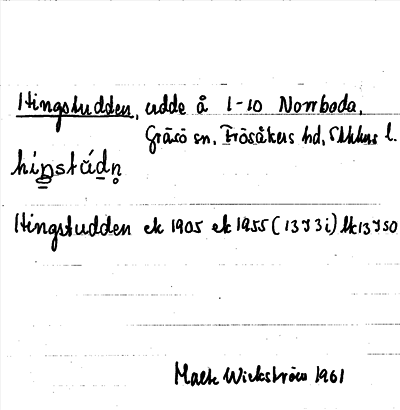 Hingstudden, udde å 1-10 Norrboda,
Gräsö sn, Frösåkers hd, Sthlms l.
Hingstudden ek 1905 ek 1955 (13J3i) lk 13J50
Wickström 1961